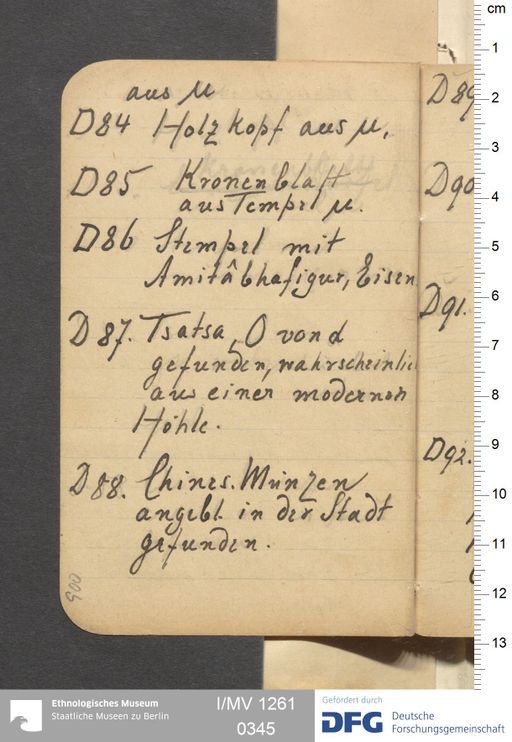 aus µ
D84 Holzkopf aus µ.
D85. Kronenblatt
aus Tempel µ.
D86 Stempel mit
Amitâbhafigur, Eisen
D87. Tsatsa, O von d
gefunden, wahrscheinlich
aus einer modernen
Höhle.
D88. Chines. Münzen
angebl. in der Stadt
gefunden.
900
D89
D90
D91.
D92.
cm
1
2
3
4
5
6
7
8
9
10
11
12
13
Ethnologisches Museum
Staatliche Museen zu Berlin
I/MV 1261
0345
Gefördert durch
DFG Deutsche
Forschungsgemeinschaft